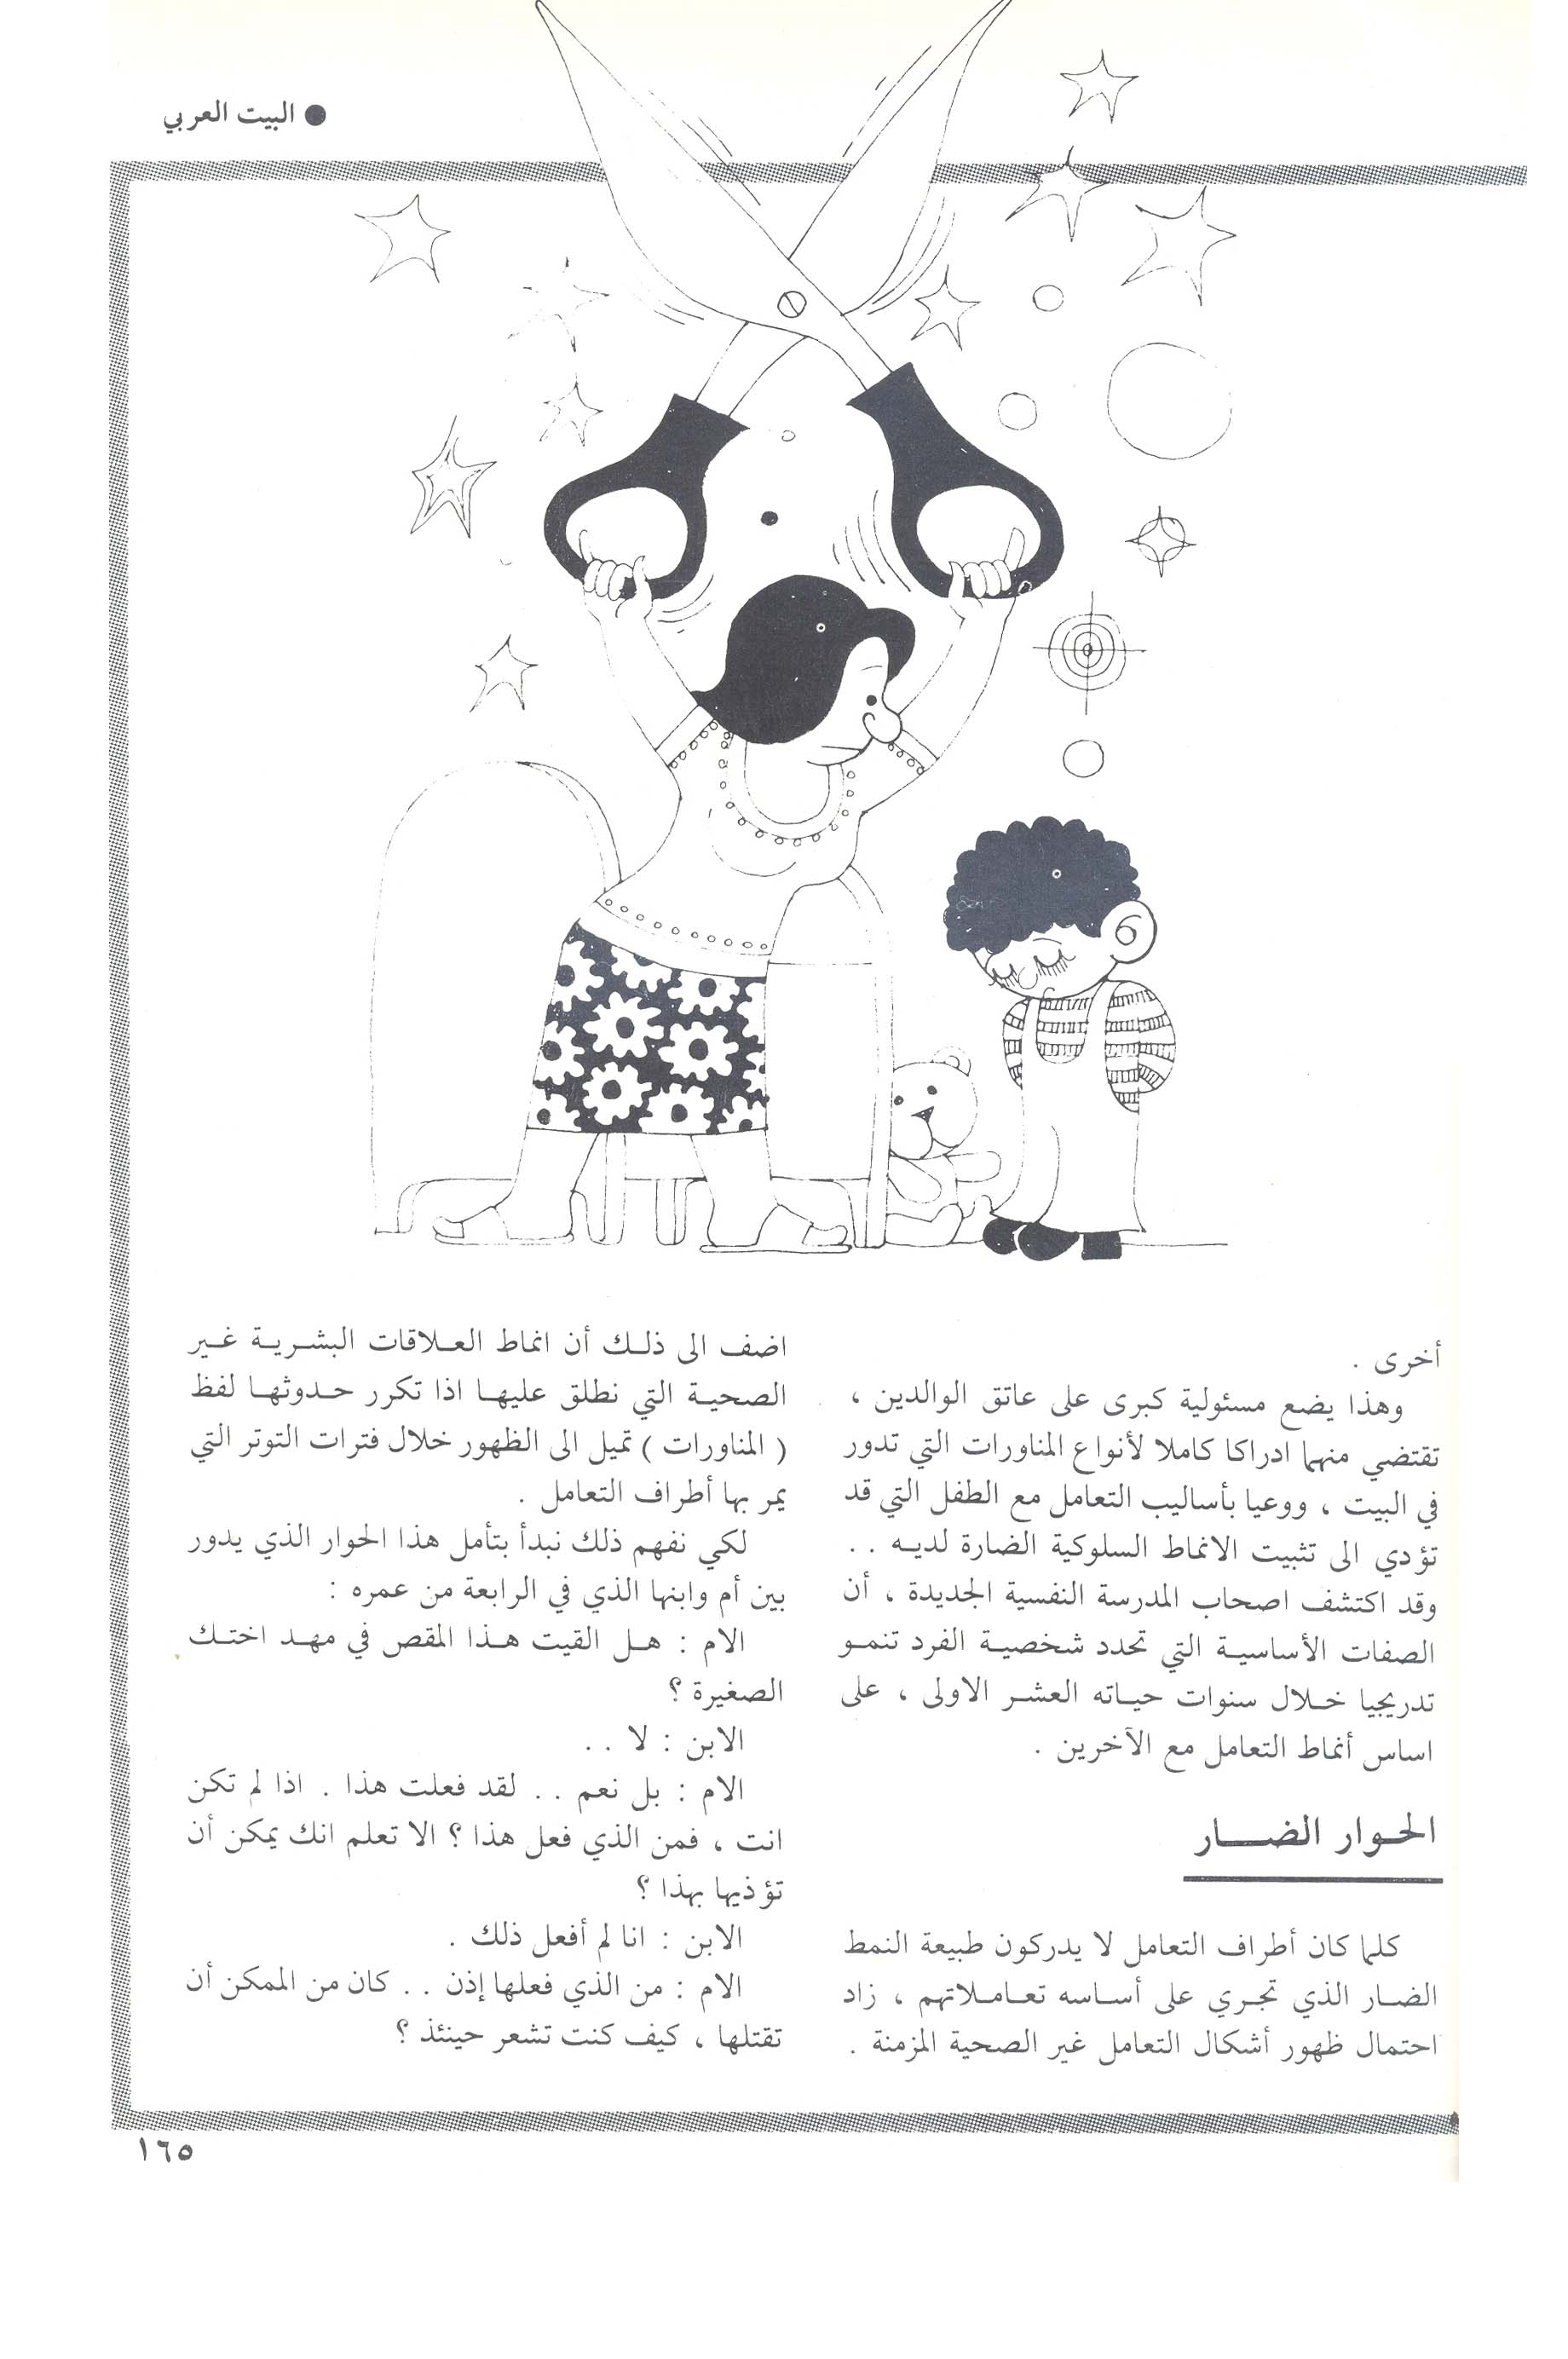 ● البيت العربي
أخرى .
وهذا يضع مسئولية كبرى على عاتق الوالدين ،
تقتضي منهما ادراكا كاملا لأنواع المناورات التي تدور
في البيت ، ووعيا بأساليب التعامل مع الطفل التي قد
تؤدي الى تثبيت الانماط السلوكية الضارة لديه . .
وقد اكتشف اصحاب المدرسة النفسية الجديدة ، أن
الصفات الأساسية التي تحدد شخصية الفرد تنمو
تدريجيا خلال سنوات حياته العشر الاولى ، على
اساس أنماط التعامل مع الآخرين .
الحوار الضار
كلما كان أطراف التعامل لا يدركون طبيعة النمط
الضار الذي تجري على أساسه تعاملاتهم ، زاد
احتمال ظهور أشكال التعامل غير الصحية المزمنة .
اضف الى ذلك أن انماط العلاقات البشرية غير
الصحية التي نطلق عليها اذا تكرر حدوثها لفظ
( المناورات ) تميل الى الظهور خلال فترات التوتر التي
يمر بها أطراف التعامل .
لكي نفهم ذلك نبدأ بتأمل هذا الحوار الذي يدور
بين أم وابنها الذي في الرابعة من عمره :
الام : هل القيت هذا المقص في مهد اختك
الصغيرة ؟
الابن : لا . .
الام : بل نعم . . لقد فعلت هذا . اذا لم تكن
انت ، فمن الذي فعل هذا ؟ الا تعلم انك يمكن أن
تؤذيها بهذا ؟
الابن : انا لم أفعل ذلك .
الام : من الذي فعلها إذن . . كان من الممكن أن
تقتلها ، كيف كنت تشعر حينئذ ؟
١٦٥